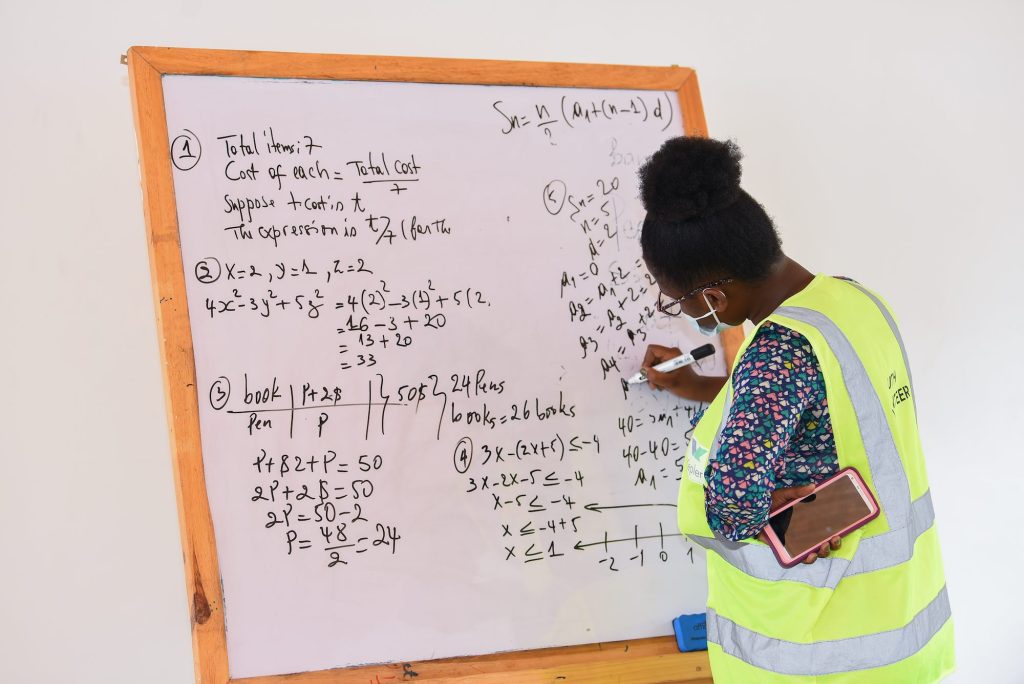 Sn = n/2 (a1+(n-1)d)
① Total items: 7
Cost of each = Total cost/7
suppose t cost is t
The expression is t/7 (for the
② x=2, y=1, z=2
4x²-3y²+5z² = 4(2)²-3(1)²+5(2
= 16-3+20
= 13+20
= 33
③ book | P+2$ | } 50$ } 24 Pens
Pen | P books = 26 books
P+$2+P=50
2P+2$=50
2P=50-2
P=48/2=24
④ 3x-(2x+5)≤-4
3x-2x-5≤-4
x-5≤-4
x≤-4+5
x≤1
-2 -1 0 1
⑤ Sn=20
n=5
d=2
a1=0
a2=a1+2=
a3=a2+2=2
a4=a3+2
40=
40-40=5
a1=5